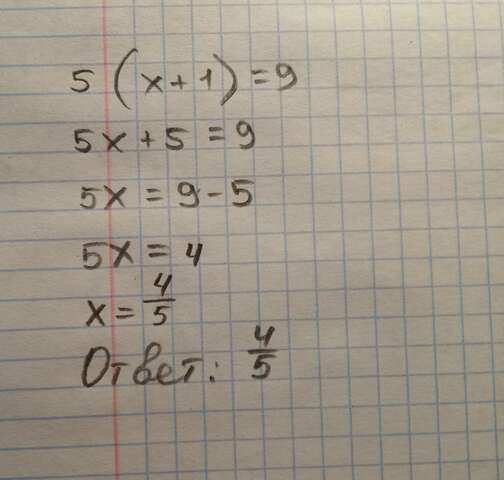 5 (x+1) = 9
5x + 5 = 9
5x = 9 - 5
5x = 4
x = 4/5
Ответ: 4/5